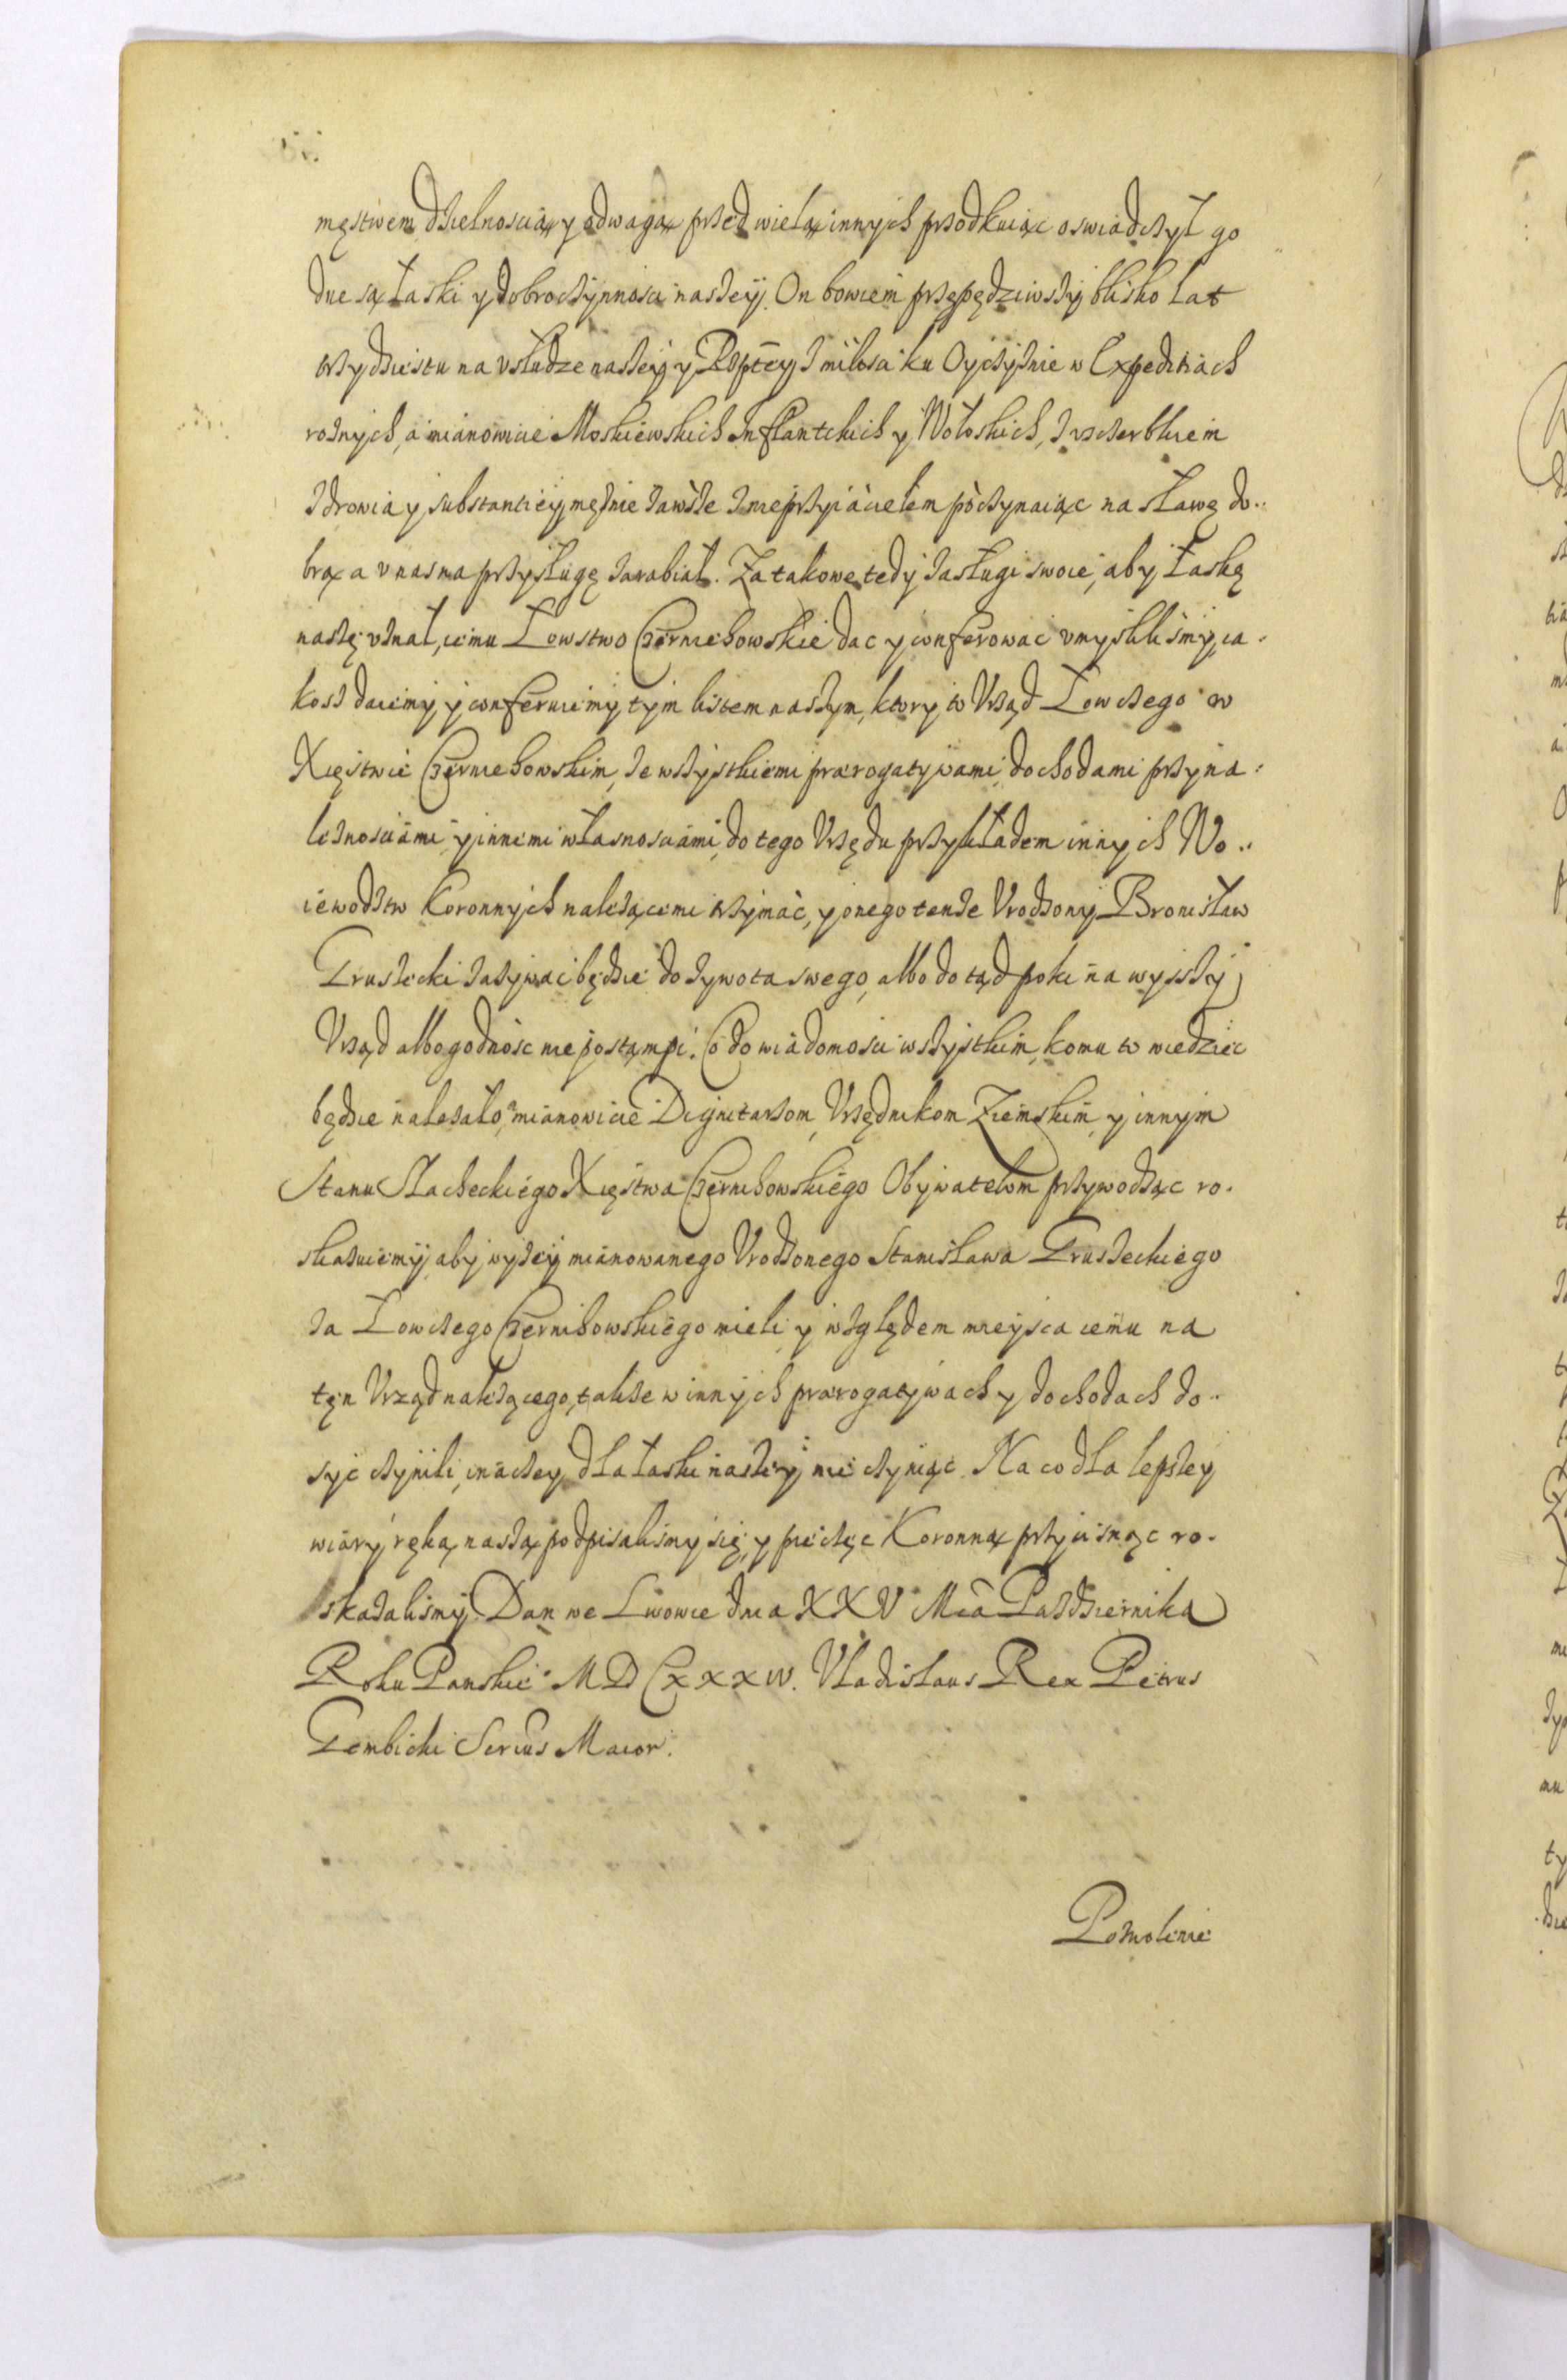 męstwem dzielnoscią y odwagą przed wielą innych przodkuiąc oswiadczył go
dne są łaski y dobroczynnosci naszey. On bowiem przepędziwszy blisko lat
trzydziestu na vsłudze naszey y Rzptēy z miłosci ku Oyczyznie w Expeditiach
roznych, a mianowicie Moskiewskich Inflantckich y Wołoskich, z vsczerbkiem
zdrowia y substantiey męznie zawsze z nieprzyiacielem poczynaiąc na sławę do..
brą a v nas na przysługę zarabiał. Za takowe tedy zasługi swoie, aby łaskę
naszę vznał, iemu Łowstwo Czerniehowskie dac y conferowac vmyslilismy, ia.
kosz daiemy y conferuiemy tym listem naszym, ktory to Vrząd Łowczego w
Xięstwie Czerniehowskim, ze wszystkiemi prærogatywami, dochodami przyna:
leznosciami y innemi własnosciami, do tego Vrzędu przykładem innych Wo..
iewodztw Koronnych nalezącemi trzymac, y onego tenze Vrodzony Bronisław
Gruszecki zazywac będzie do zywota swego, albo do tąd poki na wysszy
Vrząd albo godnosc nie postąmpi. Co do wiadomosci wszystkim, komu to wiedziec
będzie nalezało, mianowicie Dignitarzom, Vrzędnikom Ziemskim, y innym
Stanu Slacheckiego Xięstwa Czernihowskiego Obywatelom przywodząc ro.
skazuiemy, aby wyzey mianowanego Vrodzonego Stanisława Gruszeckiego
za Łowczego Czernihowskiego mieli, y względem mieysca iemu na
ten Vrząd nalezącego, takze w innych prærogatywach y dochodach do..
syc czynili, inaczey dla łaski naszey nie czyniąc. Na co dla lepszey
wiary ręką naszą podpisalismy się, y pieczęc Koronną przycisnąc ro.
skazalismy. Dan we Lwowie dnia XXV Mcā Pazdziernika
Roku Panskie° MDCXXXIV. Vladislaus Rex Petrus
Gembicki Secrius Maior.
Pozwolenie